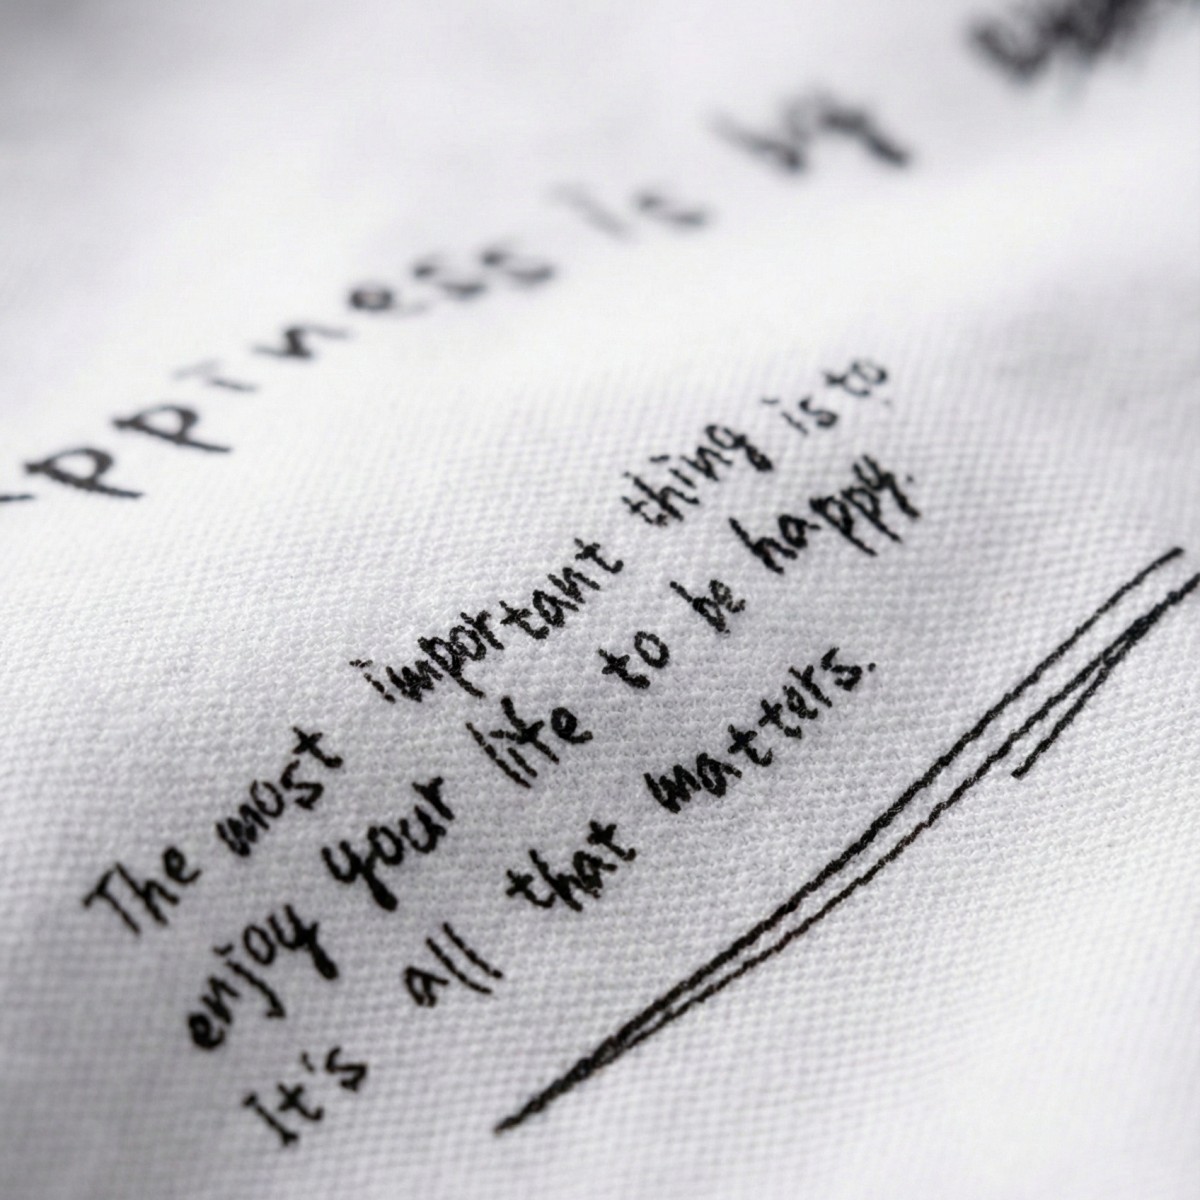 ppiness is by
The most important thing is to
enjoy your life to be happy.
It's all that matters.